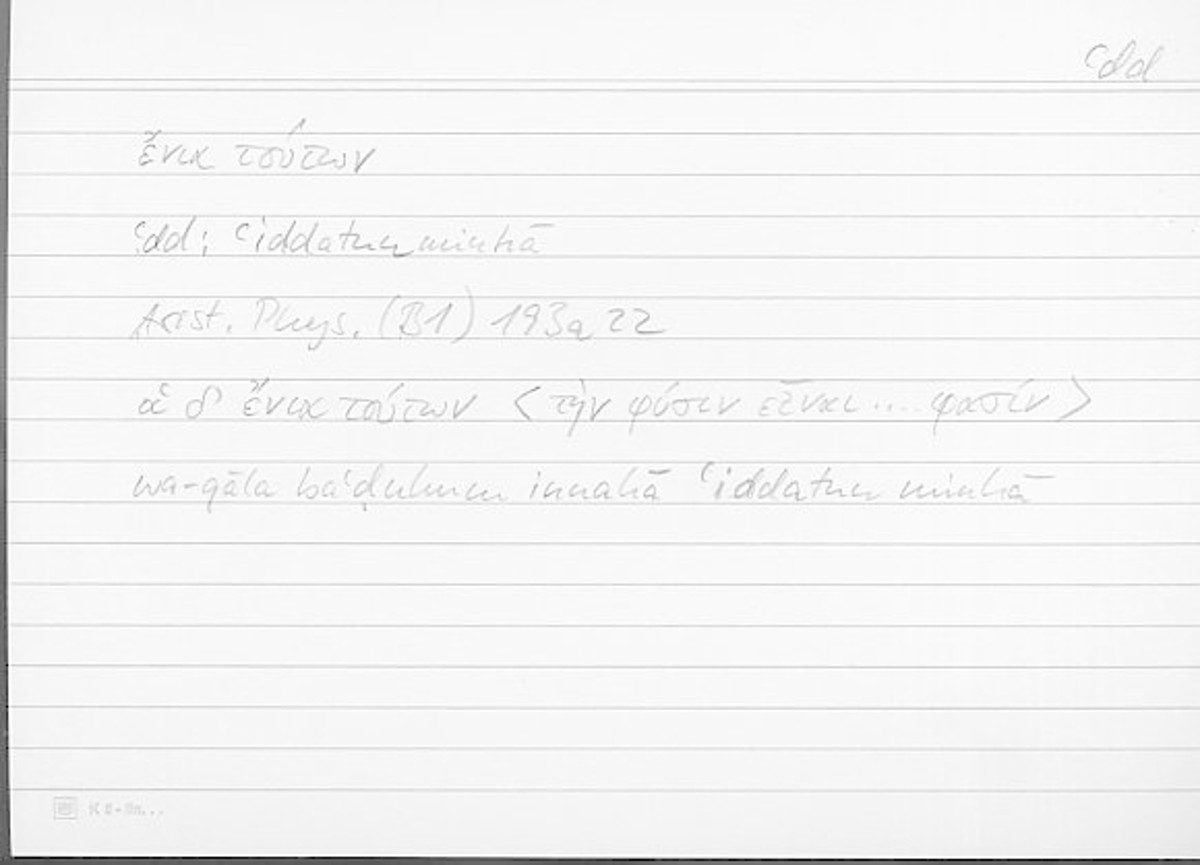 ʿdd
ἔνια τούτων
ʿdd; ʿiddatun minhā
Arist. Phys. (B1) 193a22
οἱ δ' ἔνια τούτων <τὴν φύσιν εἶναι .... φασίν>
wa-qāla baʿḍuhum innahā ʿiddatun minhā